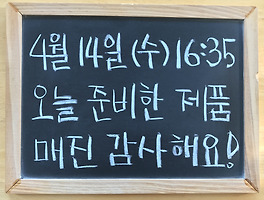 4월 14일 (수) 16:35
오늘 준비한 제품
매진 감사해요!